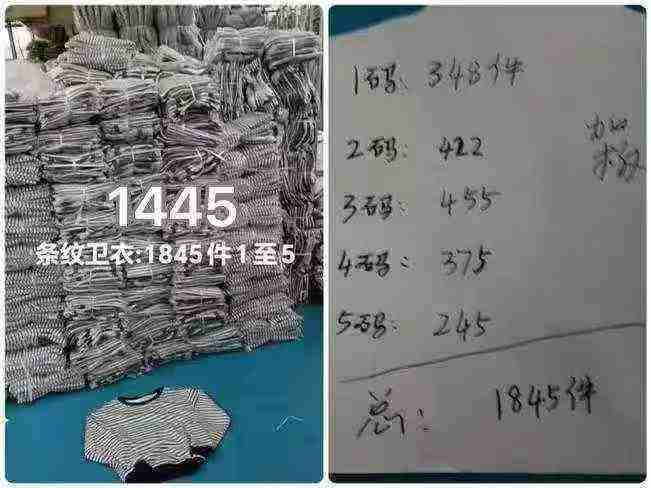 1445
条纹卫衣:1845件1至5
1码: 348件
2码: 422
3码: 455
4码: 375
5码: 245
总: 1845件